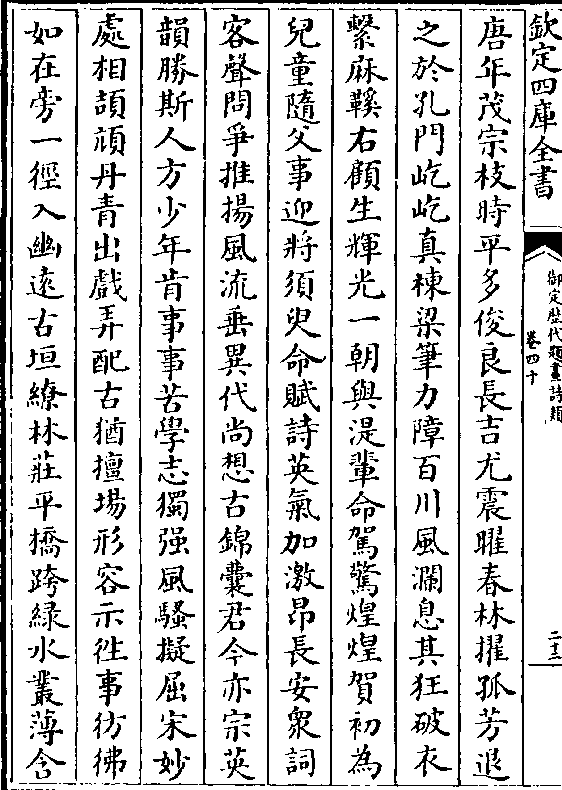 欽定四庫全書
御定歴代題畫詩類
卷四十
二十二
唐年茂宗枝時平多俊良長吉尤震曜春林擢孤芳退
之於孔門屹屹真棟梁筆力障百川風瀾息其狂破衣
繫麻鞵右顧生輝光一朝與湜輩命駕驚煌煌賀初為
兒童隨父事迎將須臾命賦詩英氣加激昂長安衆詞
客聲問爭推揚風流垂異代尚想古錦囊君今亦宗英
韻勝斯人方少年肯事事苦學志獨强風騷擬屈宋妙
處相頡頏丹青出戲弄配古猶擅場形容示徃事彷彿
如在旁一徑入幽遠古垣繚林莊平橋跨緑水叢薄含